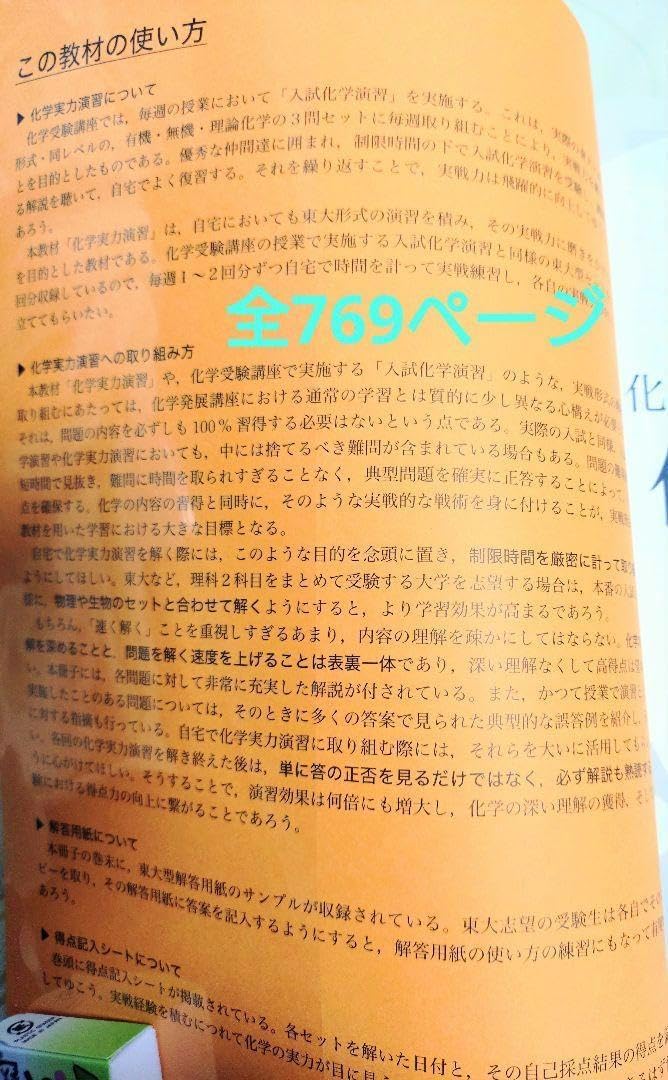 この教材の使い方
▶ 化学実力演習について
化学受験講座では，毎週の授業において「入試化学演習」を実施する。これは，実際の
形式・同レベルの，有機・無機・理論化学の3問セットに毎週取り組むことにより，実戦
とを目的としたものである。優秀な仲間達に囲まれ，制限時間の下で入試化学演習を受験し
る解説を聴いて，自宅でよく復習する。それを繰り返すことで，実戦力は飛躍的に向上して
あろう。
本教材「化学実力演習」は，自宅においても東大形式の演習を積み，その実戦力に磨きを
を目的とした教材である。化学受験講座の授業で実施する入試化学演習と同様の東大型
回分収録しているので，毎週1～2回分ずつ自宅で時間を計って実戦練習し，各自の実戦
立ててもらいたい。
全769ページ
▶ 化学実力演習への取り組み方
本教材「化学実力演習」や，化学受験講座で実施する「入試化学演習」のような，実戦形式の
取り組むにあたっては，化学発展講座における通常の学習とは質的に少し異なる心構えが必要
それは，問題の内容を必ずしも100％習得する必要はないという点である。実際の入試と同様，
学演習や化学実力演習においても，中には捨てるべき難問が含まれている場合もある。問題の難易
短時間で見抜き，難問に時間を取られすぎることなく，典型問題を確実に正答することによって，
点を確保する。化学の内容の習得と同時に，そのような実戦的な戦術を身に付けることが，実戦
教材を用いた学習における大きな目標となる。
自宅で化学実力演習を解く際には，このような目的を念頭に置き，制限時間を厳密に計って取り
ようにしてほしい。東大など，理科2科目をまとめて受験する大学を志望する場合は，本番の入試
様に，物理や生物のセットと合わせて解くようにすると，より学習効果が高まるであろう。
もちろん，「速く解く」ことを重視しすぎるあまり，内容の理解を疎かにしてはならない。化学
解を深めることと，問題を解く速度を上げることは表裏一体であり，深い理解なくして高得点は望
い。本冊子には，各問題に対して非常に充実した解説が付されている。また，かつて授業で演習
実施したことのある問題については，そのときに多くの答案で見られた典型的な誤答例を紹介し，
に対する指摘も行っている。自宅で化学実力演習に取り組む際には，それらを大いに活用しても
い。各回の化学実力演習を解き終えた後は，単に答の正否を見るだけではなく，必ず解説も熟読する
うに心がけてほしい。そうすることで，演習効果は何倍にも増大し，化学の深い理解の獲得，そし
験における得点力の向上に繋がることであろう。
▶ 解答用紙について
本冊子の巻末に，東大型解答用紙のサンプルが収録されている。東大志望の受験生は各自でその
ピーを取り，その解答用紙に答案を記入するようにすると，解答用紙の使い方の練習にもなって有
あろう。
▶ 得点記入シートについて
巻頭に得点記入シートが掲載されている。各セットを解いた日付と，その自己採点結果の得点を
してゆこう。実戦経験を積むにつれて化学の実力が目に見
化